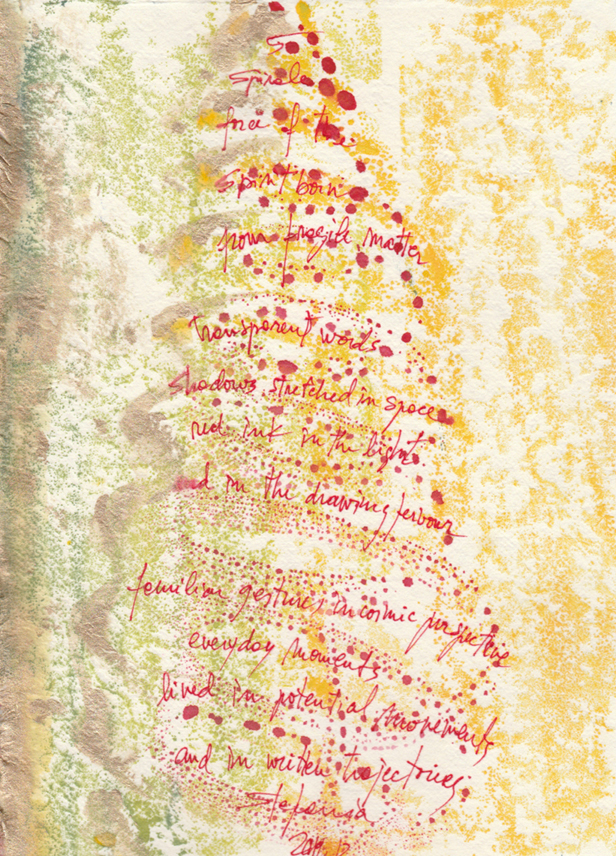 spirale
force of the
spirit born
from fragile matter
transparent words
shadows stretched in space
red ink in the light
d in the drawing fervour
familiar gestures in cosmic perspective
everyday moments
lived in potential movements
and in written trajectories
Stefania